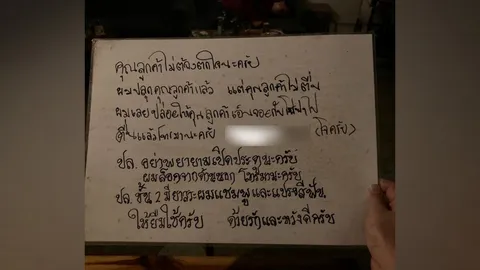 คุณลูกค้าไม่ต้องตกใจนะครับ
ผมปลุกคุณลูกค้าแล้ว แต่คุณลูกค้าไม่ตื่น
ผมเลยปล่อยให้คุณลูกค้า
ตื่นแล้วโทรมานะครับ (โจครับ)
ปล. อย่าพยายามเปิดประตูนะครับ
ผมล็อคจากด้านนอก โทรมานะครับ
ปล. ชั้น 2 มียาสระผมแชมพูและแปรงสีฟัน.
ให้ยืมใช้ครับ ด้วยรักและหวังดีครับ